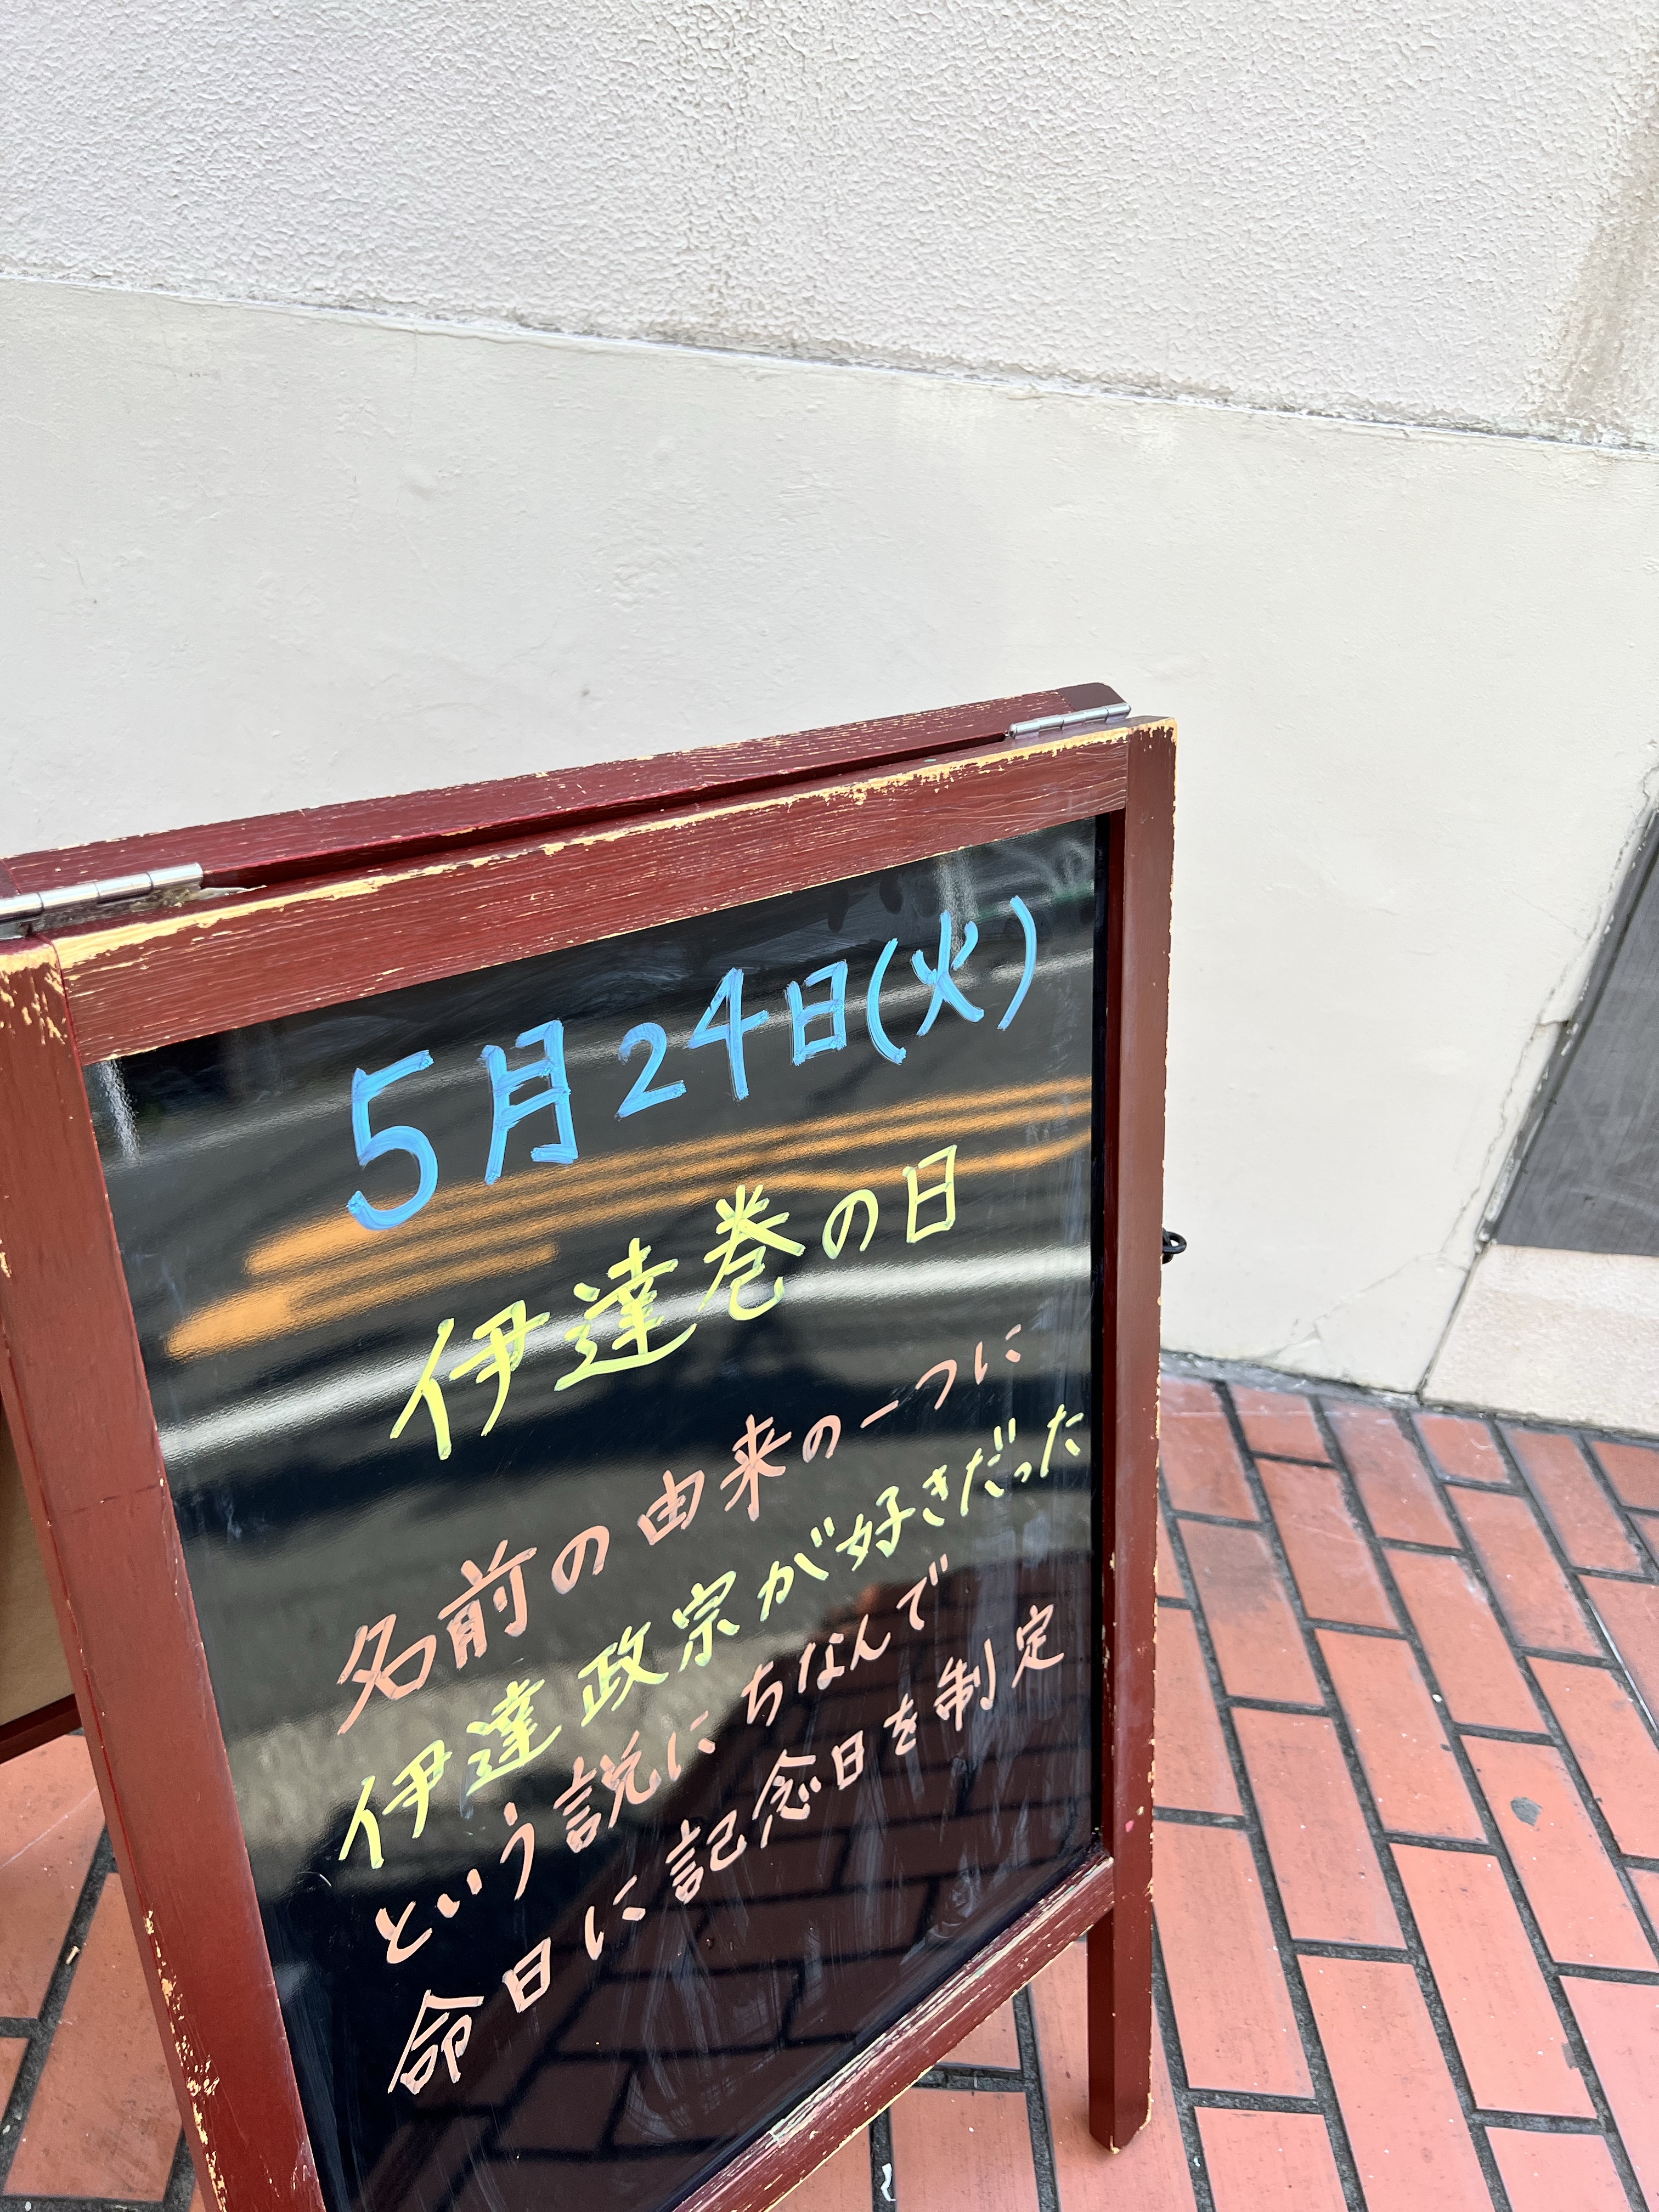 5月24日(火)
伊達巻の日
名前の由来の一つに
伊達政宗が好きだった
という説にちなんで
命日に記念日を制定